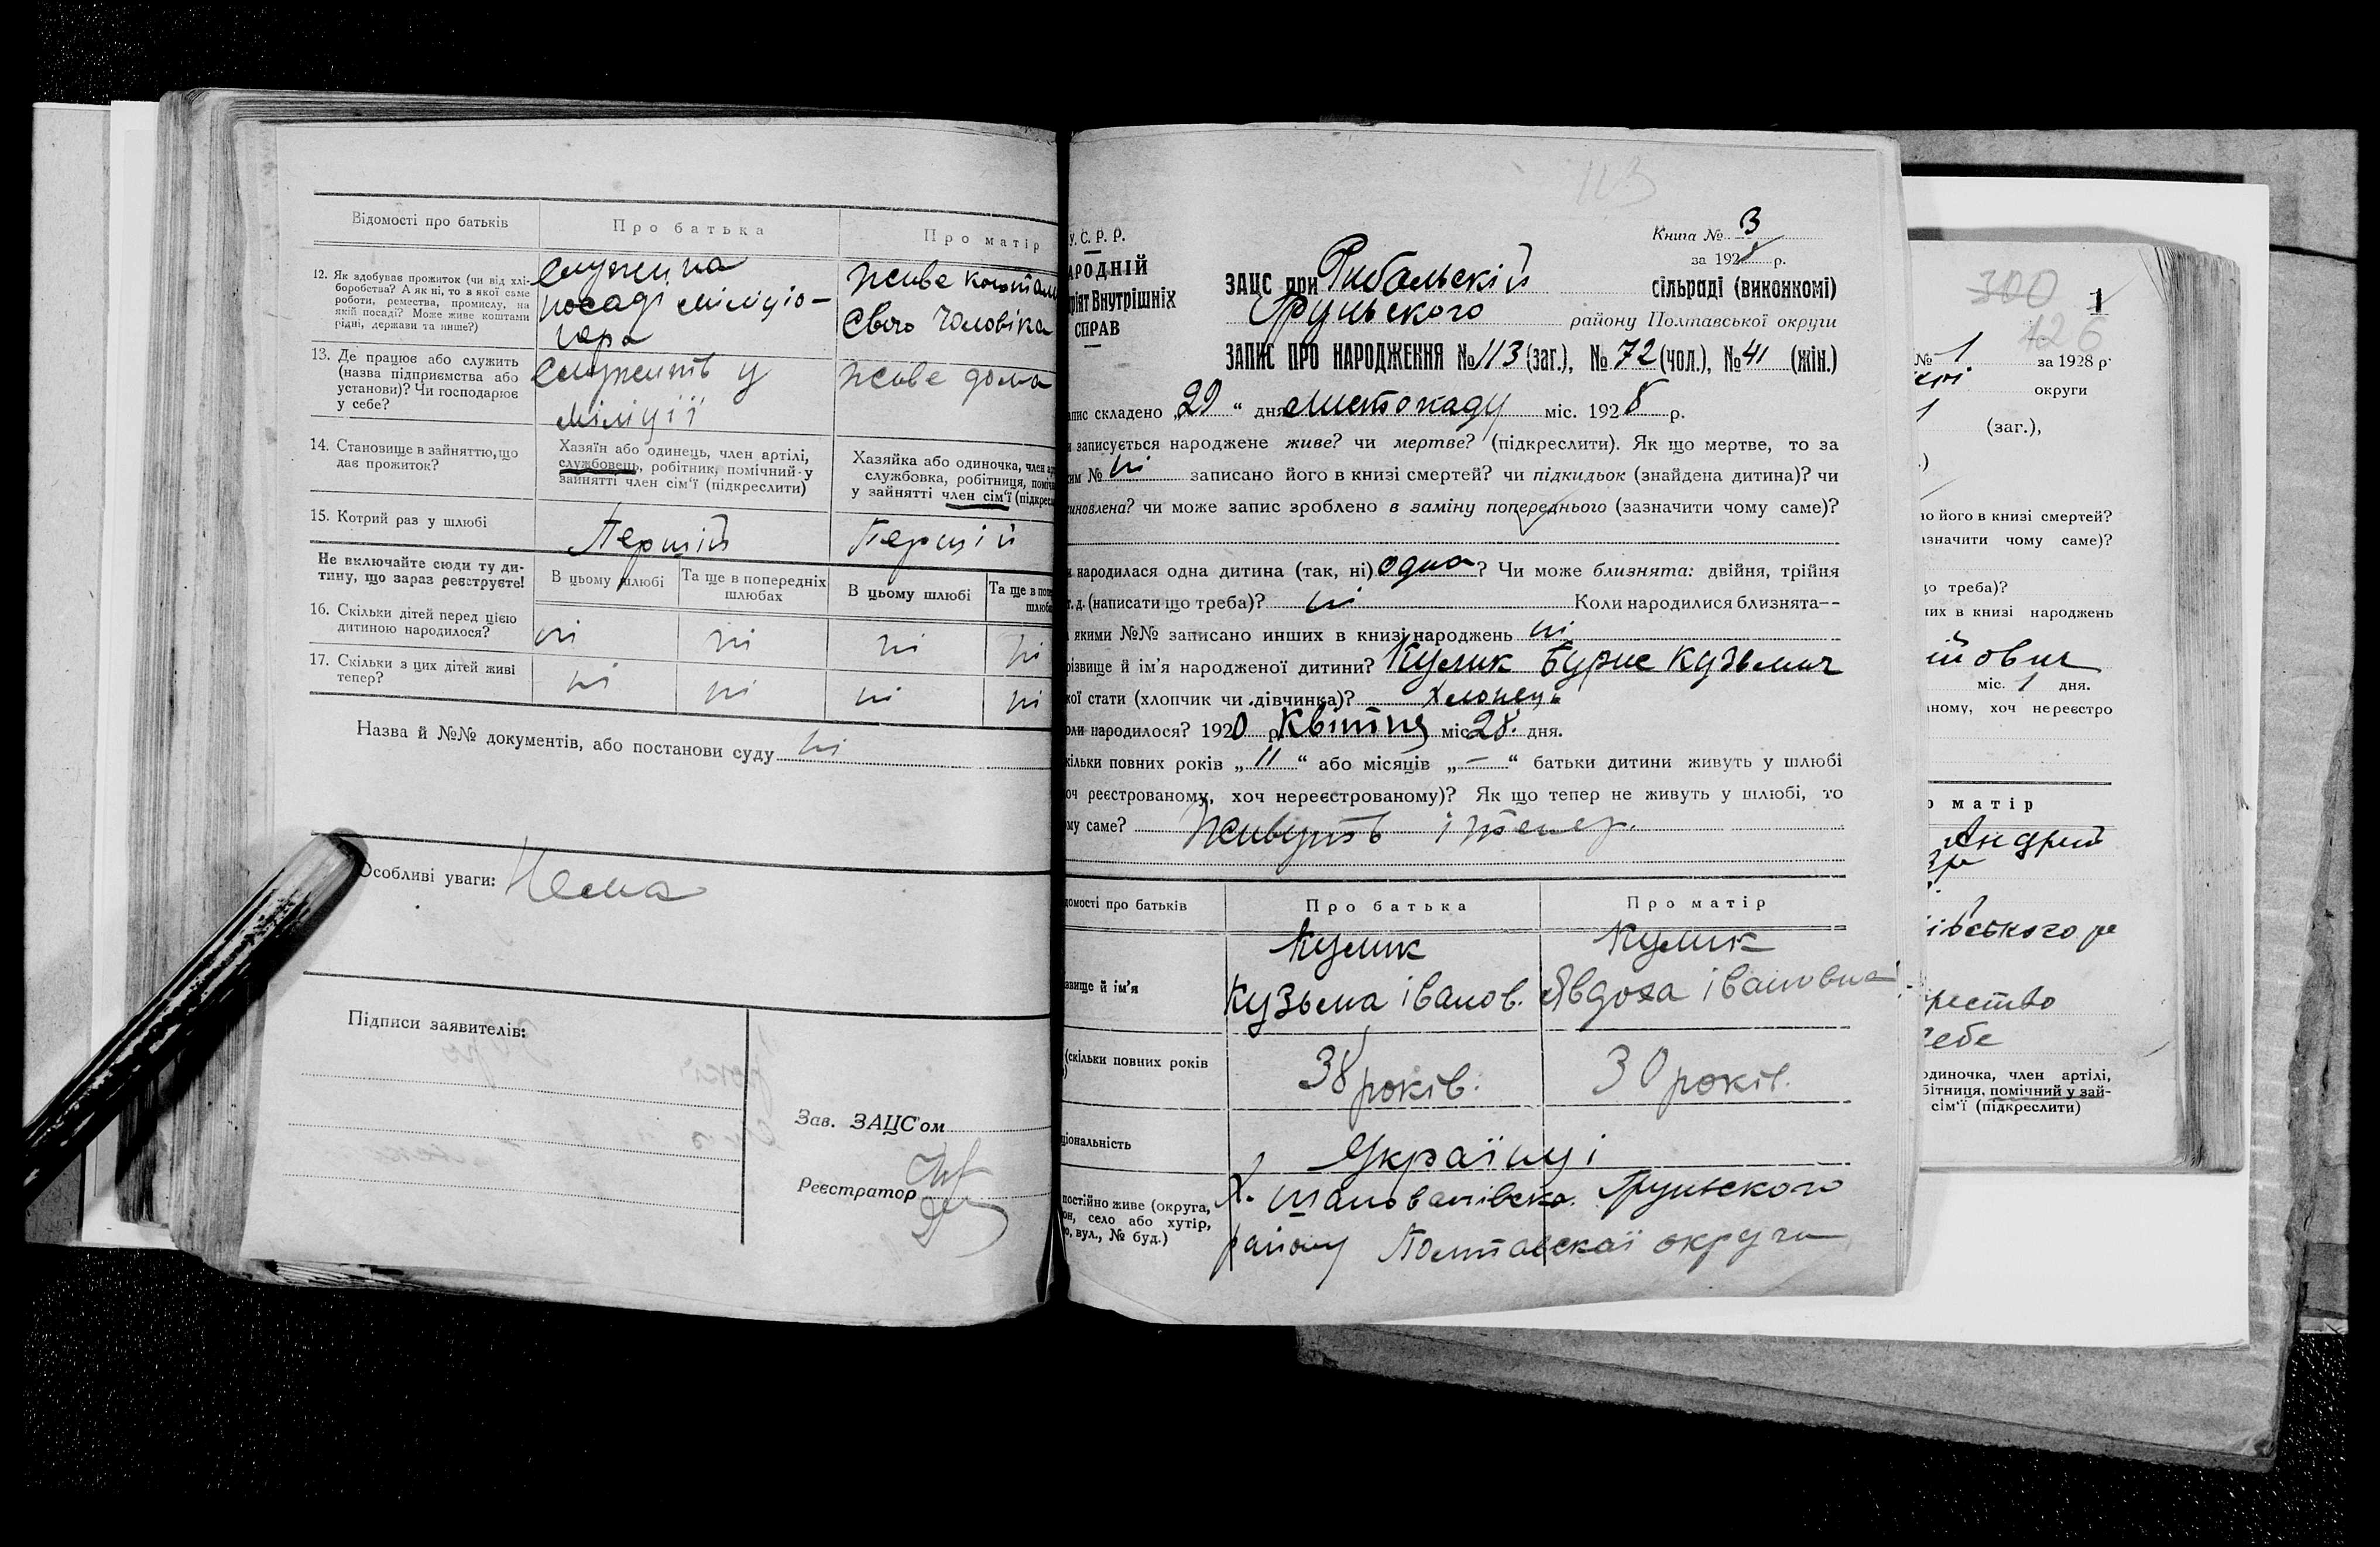 Відомості про батьків
Про батька
Про матір
12. Як здобуває прожиток (чи від хлі-
боробства? А як ні, то з якої саме
роботи, ремества, промислу, на
якій посаді? Може живе коштами
рідні, держави та инше?)
Служить на
посаді міліціо-
нера
живе коштам
Свого Чоловіка
13. Де працює або служить
(назва підприємства або
установи)? Чи господарює
у себе?
Служить у
міліції
живе дома
14. Становище в зайняттю, що
дає прожиток?
Хазяїн або одинець, член артілі,
службовець, робітник, помічний у
зайнятті член сім'ї (підкреслити)
Хазяйка або одиночка, член ар
службовка, робітниця, поміч
у зайнятті член сім'ї (підкресл
15. Котрий раз у шлюбі
Перший
Перший
Не включайте сюди ту ди-
тину, що зараз реєструєте!
В цьому шлюбі
Та ще в попередніх
шлюбах
В цьому шлюбі
Та ще в попе
шлюба
16. Скільки дітей перед цією
дитиною народилося?
ні ні ні ні
17. Скільки з цих дітей живі
тепер?
ні ні ні ні
Назва й №№ документів, або постанови суду ні
Особливі уваги: Нема
Підписи заявителів:
Зав. ЗАЦС'ом
Реєстратор
113
У. С. Р. Р.
АРОДНІЙ
ріят Внутрішніх
СПРАВ
Книга № 3
за 1928 р.
ЗАЦС при Рибальскій сільраді (виконкомі)
Грунського району Полтавської округи
ЗАПИС ПРО НАРОДЖЕННЯ № 113 (заг.), № 72 (чол.), № 41 (жін.)
апис складено „29“ дня листопаду міс. 1928 р.
и записується народжене живе? чи мертве? (підкреслити). Як що мертве, то за
ким № ні записано його в книзі смертей? чи підкидьок (знайдена дитина)? чи
иновлена? чи може запис зроблено в заміну попереднього (зазначити чому саме)?
и народилася одна дитина (так, ні) одна? Чи може близнята: двійня, трійня
т. д. (написати що треба)? ні Коли народилися близнята—
а якими №№ записано инших в книзі народжень ні
різвище й ім'я народженої дитини? Кулик Бурис Кузьмич
кої стати (хлопчик чи дівчинка)? хлопець
оли народилося? 1920 р. Квітня міс. 28. дня.
кільки повних років „11“ або місяців „—“ батьки дитини живуть у шлюбі
оч реєстрованому, хоч нереєстрованому)? Як що тепер не живуть у шлюбі, то
ому саме? Живуть і тепер.
домості про батьків
Про батька
Про матір
звище й ім'я
Кулик
Кузьма іванов.
Кулик
Явдоха івановна
(скільки повних років
38 років.
30 років.
ціональність
Українці
постійно живе (округа,
он, село або хутір,
о, вул., № буд.)
х. Шановалівска. Грунського
району Полтавскаї округи
300
126
1
№ 1 за 1928 р.
округи
1 (заг.),
.)
но його в книзі смертей?
азначити чому саме)?
що треба)?
их в книзі народжень
йович
міс. 1 дня.
ному, хоч нереєстро
о матір
Андрій
івського ра
рество
себе
одиночка, член артілі,
бітниця, помічний у зай-
сім'ї (підкреслити)